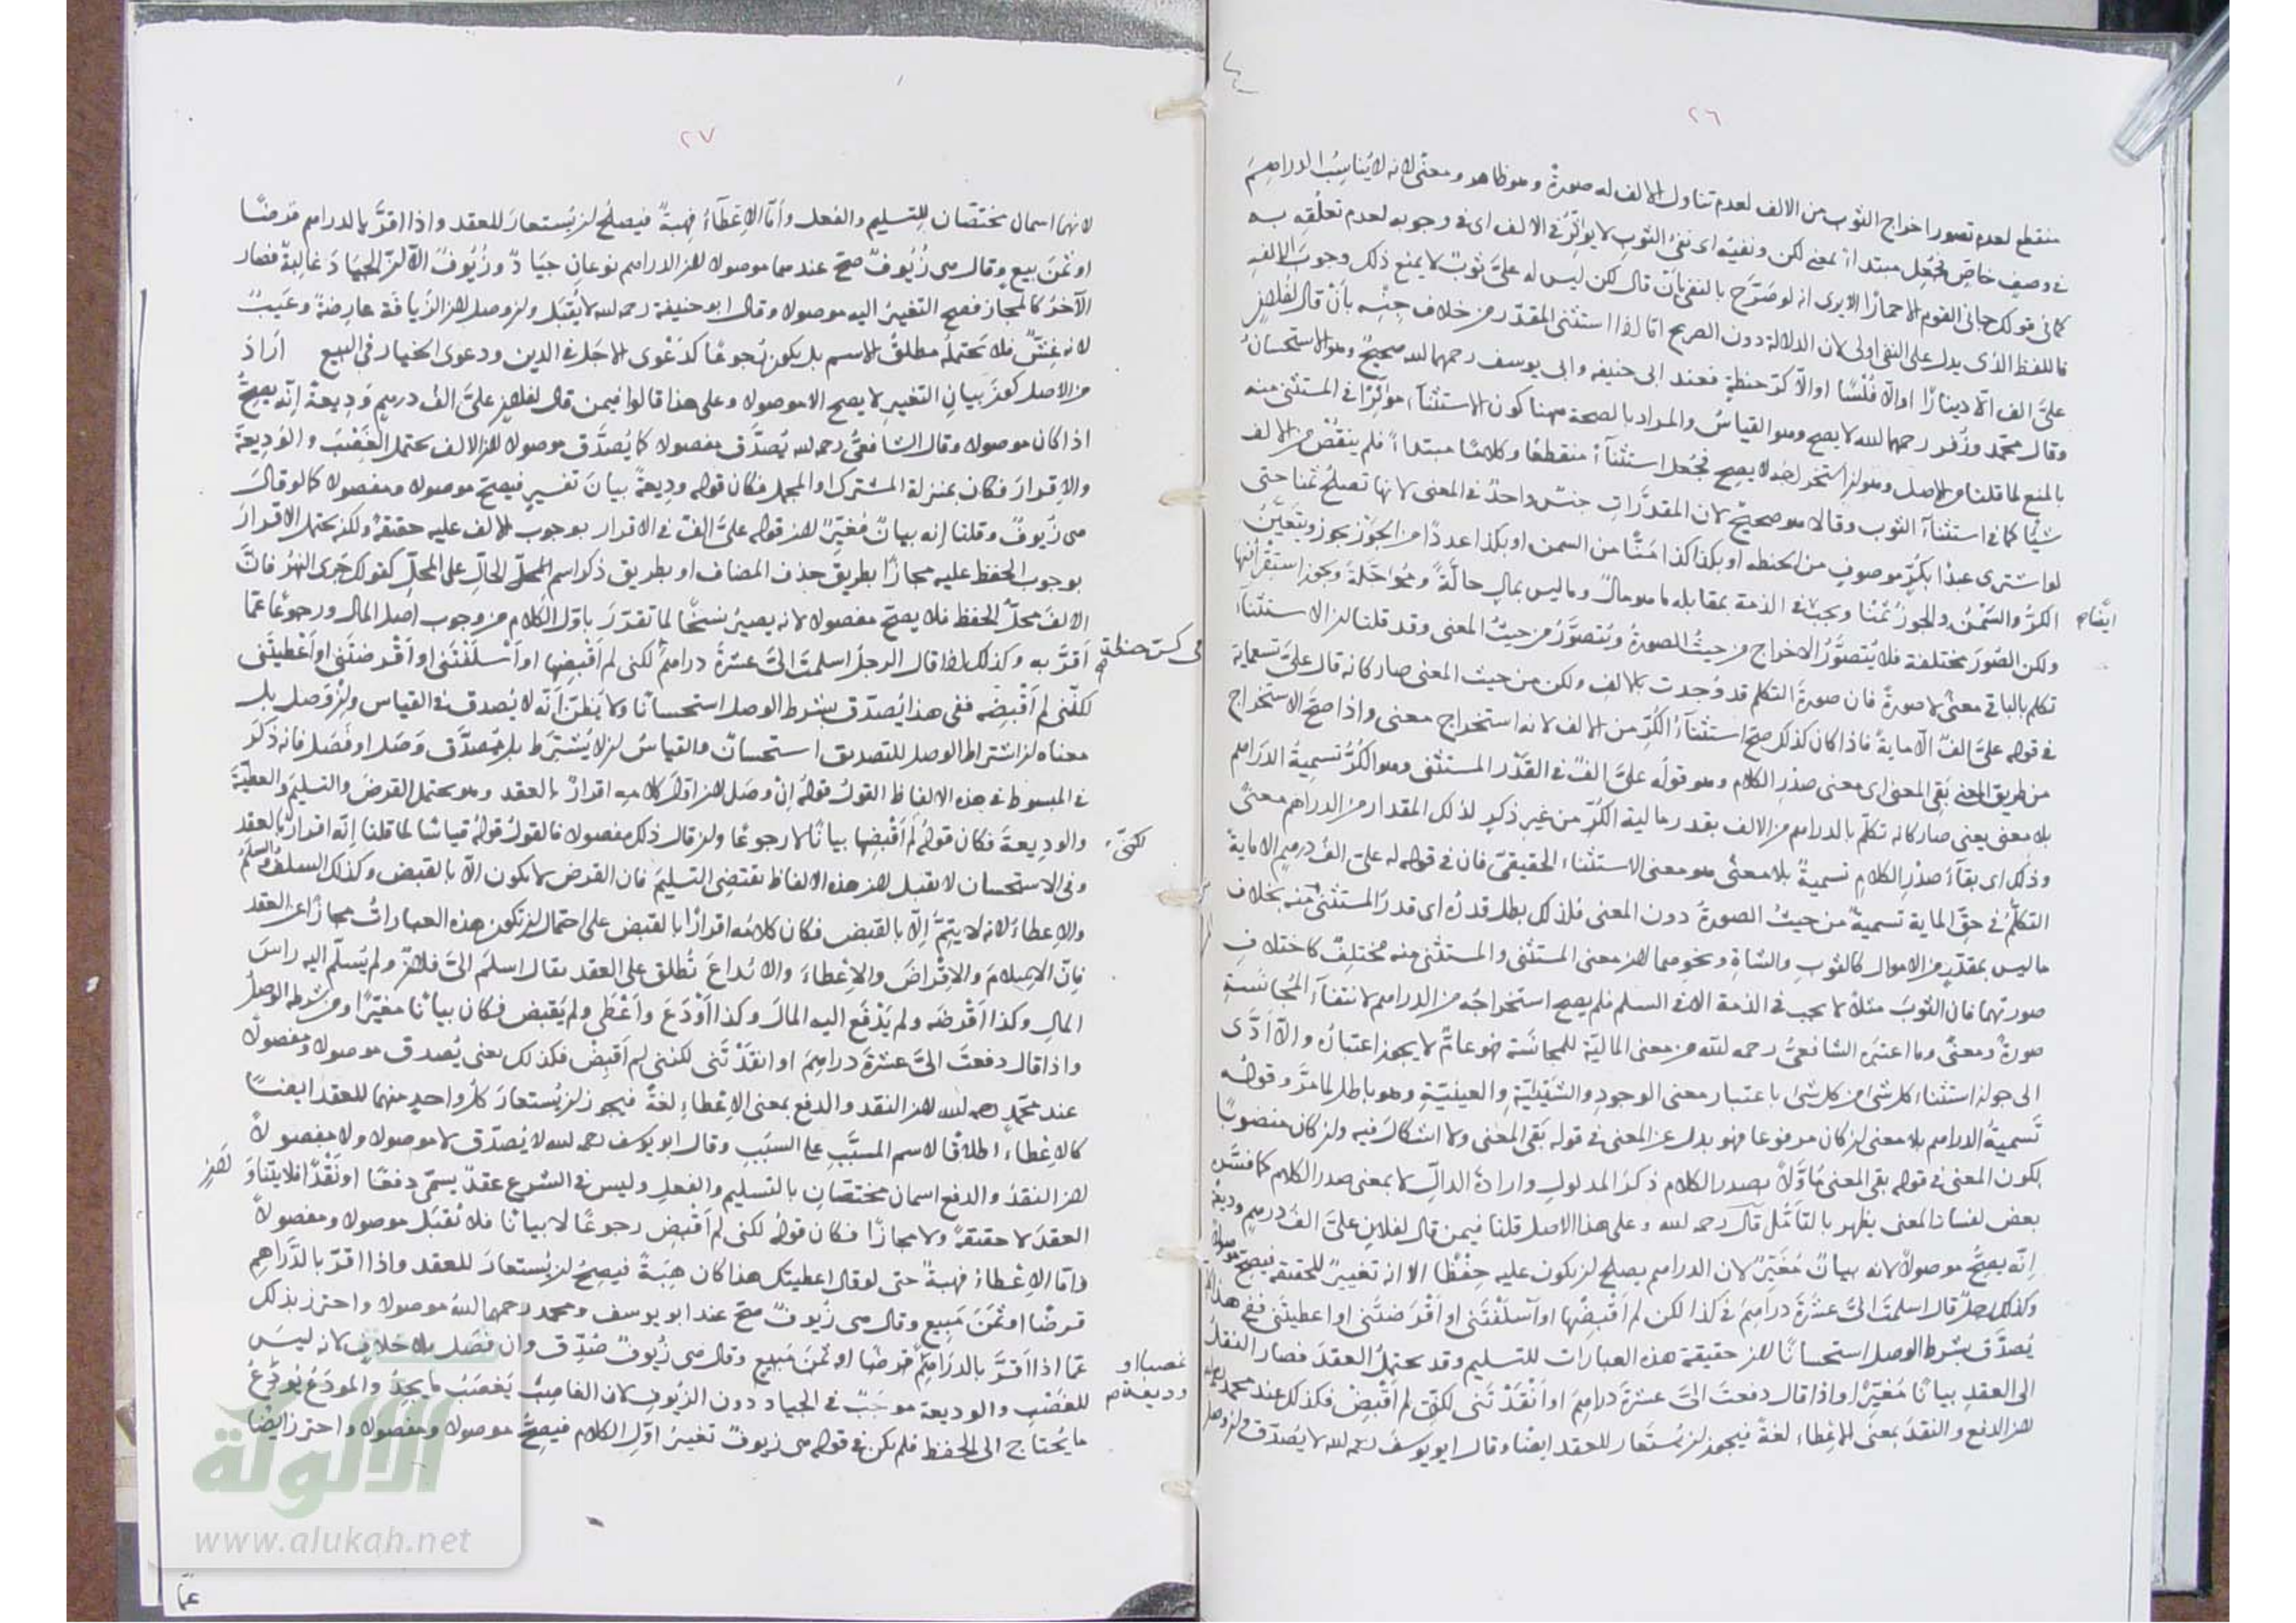 ٢٦
منقطع لعدم تصور اخراج الثوب من الالف لعدم تناول الالف له صورةً وهو ظاهر ومعنًى لانه لا يُناسِبُ الدراهمَ
في وصفٍ خاصٍّ فجُعِل مبتدأ بمعنى لكن ونفيُه اى نفىُ الثوبِ لا يؤثِّرُ في الالف اى في وجوبه لعدم تعلُّقِه به
كما في قولك جانى القوم الا حمارًا الا يرى انه لو صَرَّح بالنفى بأن قال لكن ليس له علىَّ ثوبٌ لا يمنع ذلك وجوبَ الالفِ
فاللفظ الذى يدل على النفى اولى لان الدلالة دون الصريح امّا اذا استثنى المقدّر من خلاف جنسِه بأنْ قال لفلانٍ
علىَّ الف الّا دينارًا او الّا فَلْسًا او الّا كرّ حنطةٍ فعند ابى حنيفة وابى يوسف رحمهما الله صحيحٌ وهو الاستحسانُ
وقال محمّد وزُفر رحمهما الله لا يصح وهو القياسُ والمراد بالصحة ههنا كون الاستثناء مؤثِّرًا في المستثنى منه
بالمنع لما قلنا من الاصل وهو ان استخراجه لا يصح فجُعل استثناءً منقطعًا وكلامًا مبتدأً فلم ينقُصْ من الالف
شيئًا كما في استثناء الثوب وقالا هو صحيحٌ لان المقدَّراتِ جنسٌ واحدٌ في المعنى لانها تصلحُ ثمنا حتى
لو اشترى عبدًا بكُرٍّ موصوفٍ من الحنطه او بكذا كذا مَنًّا من السمن او بكذا عددًا من الجَوْز يجوز ويتعيَّنُ
الكرُّ والسَّمْنُ والجوزُ ثمنًا ويجبُ في الذمة بمقابله ما هو مالٌ وما ليس بمالٍ حالَّةً ومُؤجَّلةً ويجوز استقراضُها
ولكن الصُّورَ مختلفة فلا يُتصوَّرُ الاخراج من حيثُ الصورةُ ويُتصوَّرُ من حيثُ المعنى وقد قلنا ان الاستثناءَ
تكلم بالباقى معنًى لا صورةً فان صورةَ التكلم قد وُجدت بالالف ولكن من حيث المعنى صار كانه قال علىَّ تسعمايةٍ
في قوله علىَّ الفٌ الّا مايةً فاذا كان كذلك صحّ استثناءُ الكُرِّ من الالف لانه استخراج معنى واذا صحّ الاستخراج
من طريق المعنى بَقِى المعنى اى معنى صدْرِ الكلام وهو قوله علىَّ الفٌ في القَدْر المستثنى وهو الكُرُّ تسميةَ الدراهم
بلا معنى يعنى صار كانه تكلّم بالدراهم من الالف بقدر مالية الكُرِّ من غير ذكرٍ لذلك المقدار من الدراهم معنًى
وذلك اى بقآءُ صدْرِ الكلام تسميةً بلا معنًى هو معنى الاستثناء الحقيقىّ فان في قوله له علىّ الفُ درهمٍ الا مايةً
التكلُّمُ في حقّ الماية تسميةٌ من حيثُ الصورةُ دون المعنى فلذلك بطل قدرُه اى قدرُ المستثنى منه بخلاف
ما ليس بمقدّرٍ من الاموال كالثوبِ والشاةِ ونحوهما لان معنى المستثنى والمستثنى منه مختلفٌ كاختلافِ
صورتهما فان الثوبَ مثلًا لا يجب في الذمة الا في السلم فلم يصح استخراجُه من الدراهم لانتفآء المُجانَسةِ
صورةً ومعنًى وما اعتبره الشافعىُّ رحمه الله من معنى الماليّة للمجانَسة فهو عامٌّ لا يجوز اعتبارُه والّا ادَّى
الى جواز استثناء كل شئ من كل شئ باعتبار معنى الوجودِ والشيئيَّةِ والعينيّةِ وهو باطل لما مرَّ وقولُه
تسميةُ الدراهم بلا معنى ان كان مرفوعا فهو بدل عن المعنى في قوله بَقى المعنى ولا اشكالَ فيه وان كان منصوبًا
يكون المعنى في قوله بقى المعنى مأوَّلًا بصدر الكلام ذكرَ المدلولِ وارادةَ الدالِّ لا بمعنى صدر الكلام كما فسَّره
بعض لفساد المعنى يظهر بالتأمّل قال رحمه الله وعلى هذا الاصل قلنا فيمن قال لفلانٍ علىَّ الفُ درهمٍ وديعةً
إنّه يصِحُّ موصولًا لانه بيانٌ مُغيّرٌ لان الدراهم يصلح ان يكون عليه حِفْظًا الا انه تغييرٌ للحقيقه فيصح موصولًا
وكذلك رجلٌ قال اسلمتَ الىَّ عشرةَ دراهمَ في كذا لكن لم اَقْبِضْها او اَسْلَفْتَنى او اَقْرَضتَنى او اعطيتَنى ففى هذا كله
يُصدَّق بشرط الوصل استحسانًا لان حقيقة هذه العبارات للتسليم وقد يحتملُ العقدَ فصار النقلُ
الى العقدِ بيانًا مُغيّرًا واذا قال دفعتَ الىَّ عشرةَ دراهمَ او اَنْقَدْتَنى لكنّى لم اَقْبِضْ فكذلك عند محمد رحمه الله
لان الدفع والنقدَ بمعنى الاعطاء لغةً فيجوز ان يُستعار للعقد ايضًا وقال ابو يوسفُ رحمه الله لا يُصدَّق وان وصل
ايضًا
٢٧
لانهما اسمان مختصّان للتسليم والفعل وأمّا الاعْطآءُ فهِبةٌ فيصلحُ ان يُستعارَ للعقد واذا اقرَّ بالدراهم قرضًا
او ثمنَ بيعٍ وقال هى زُيُوفٌ صحّ عندهما موصولا لان الدراهم نوعانِ جِيَادٌ وزُيُوفٌ الّا انّ الجيادَ غالبةٌ فصار
الآخرُ كالمجاز فصح التغييرُ اليه موصولا وقال ابو حنيفة رحمه الله لا يُقبَل وان وصل لان الزيافةَ عارِضةٌ وعَيبٌ
لانه غِشٌّ فلا تَحتملُه مطلقُ الاسم بل يكون رُجوعًا كدَعْوى الاجَل في الدين ودعوى الخيار في البيع ارَادَ
من الاصل كونَ بيانِ التغييرِ لا يصح الا موصولا وعلى هذا قالوا فيمن قال لفلانٍ علىَّ الفُ درهمٍ وَدِيعةً إنّه يصحُّ
اذا كان موصولا وقال الشافعىُّ رحمه الله يُصدَّق مفصولا كما يُصدَّق موصولا لان الالف يحتمل الغَصْبَ والوَدِيعةَ
والإقرارَ فكان بمنزلة المشترك او المجمل فكان قوله وديعةً بيانَ تفسيرٍ فيصحّ موصولا ومفصولا كما لو قالَ
هى زُيوفٌ وقلنا إنه بيانٌ مُغيِّرٌ لان قوله علىَّ الفٌ في الاقرار بوجوب الالف عليه حقيقةً ولكن يحتمل الاقرارَ
بوجوب الحفظ عليه مجازًا بطريق حذف المضاف او بطريق ذكر اسم المحلّ الحالِّ على المحلِّ كقولك جَرى النهرُ فانَّ
الالفَ محلُّ الحفظ فلا يصحّ مفصولا لانه يصيرُ نسخًا لما تقرّرَ باوّل الكلام من وجوب اصل المال ورجوعًا عمّا
أقرَّ به وكذلك اذا قال الرجلُ اسلمتَ الىَّ عشرةَ دراهمَ لكنى لم اَقْبِضها او اَسْلَفْتَنى او اَقْرضتَنى او اَعْطيتَنى
لكنّى لم اَقْبِضْه ففى هذا يُصدّق بشرط الوصل استحسانًا ولا يظنَّ أنّه لا يُصدق في القياس وان وصل بل
معناه ان اشتراط الوصل للتصديق استحسانٌ والقياسُ ان لا يُشترَط بل يُصدَّق وَصَل او فَصَل فانه ذكرَ
في المبسوط في هذه الالفاظ القولُ قولُه اِنْ وصَل لان اوّلَ كلامه اقرارٌ بالعقد وهو يحتمل القرضَ والتسليمَ والعطيّةَ
والوديعةَ فكان قولُه لم اَقْبِضها بيانًا لا رجوعًا وان قال ذلك مفصولا فالقولُ قولُه قياسًا لما قلنا إنّه اقرارٌ بالعقد
وفى الاستحسان لا يقبل لان هذه الالفاظ تقتضى التسليمَ فان القرض لا يكون الّا بالقبض وكذلك السلفُ والسلمُ
والاعطاءُ لانه لا يتِمُّ إلّا بالقبض فكان كلامُه اقرارًا بالقبض على احتمال ان تكون هذه العباراتُ مجازًا عن العقد
فانّ الإسلامَ والاقْراضَ والإعْطاءَ والايْداعَ تُطلق على العقد يقال اسلمَ الىَّ فلانٌ ولم يُسلّم اليه راسَ
المال وكذا اَقْرضَه ولم يَدْفَع اليه المالَ وكذا اَوْدَعَ واَعْطَى ولم يَقبض فكان بيانًا مغيّرًا ومن شرطه الوصلُ
واذا قال دفعتَ الىَّ عشرةَ دراهمَ او انقَدْتَنى لكننى لم اَقبِضْ فكذلك يعنى يُصدق موصولا ومفصولًا
عند محمّدٍ رحمه الله لان النقد والدفع بمعنى الاعطاءِ لغةً فيجوز ان يُستعارَ كلُّ واحدٍ منهما للعقد ايضًا
كالاعْطاءِ اطلاقًا لاسم المسبَّبِ على السبَبِ وقال ابو يوسف رحمه الله لا يُصدّق لا موصولا ولا مفصولًا
لان النقدَ والدفع اسمان مختصّانِ بالتسليم والفعلِ وليس في الشرع عقدٌ يسمّى دفعًا او نَقْدًا فلا يتناوَل
العقدَ لا حقيقةً ولا مجازًا فكان قولُه لكنى لم اَقْبِض رجوعًا لا بيانًا فلا يُقبَل موصولا ومفصولًا
وامّا الاعْطاءُ فهبةٌ حتى لو قال اعطيتك هذا كان هِبَةً فيصحُّ ان يُستعارَ للعقد واذا اقرّ بالدَّراهمِ
قرضًا او ثَمَنَ مَبِيعٍ وقال هى زُيوفٌ صحّ عند ابو يوسف ومحمد رحمهما الله موصولا واحترز بذلك
عمّا اذا اَقرَّ بالدراهِم قرضًا او ثمنَ مَبيعٍ وقال هى زُيوفٌ صُدِّق وان فَصَل بلا خلافٍ لانه ليسَ
للغَصْبِ والوديعة موجَبٌ في الجياد دون الزُيوفِ لان الغاصِبَ يَغصَبُ ما يجِدُ والمودِعُ يُودِعُ
ما يُحتاج الى الحفظ فلم يكن في قوله هى زيوفٌ تغييرُ اوّلِ الكلام فيصحُّ موصولا ومفصولا واحترز ايضًا
لكنّى
غصبا او
وديعة م
عمّا
الالوكة
www.alukah.net